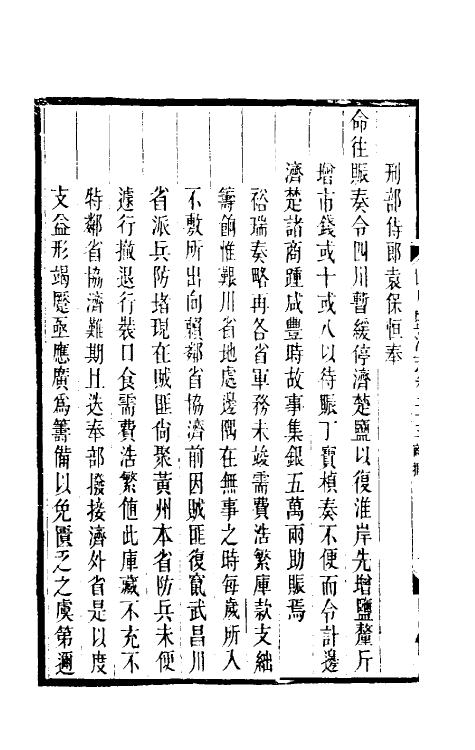 刑部侍郎袁保恒奉
命往賑奏令四川暫緩停濟楚鹽以復淮岸先增鹽釐斤
增市錢或十或八以待賑丁寶楨奏不便而令計邊
濟楚諸商踵咸豐時故事集銀五萬兩助賑焉
裕瑞奏略再各省軍務未竣需費浩繁庫款支絀
籌餉惟艱川省地處邊隅在無事之時每歲所入
不敷所出向賴鄰省協濟前因賊匪復竄武昌川
省派兵防堵現在賊匪尙聚黃州本省防兵未便
遽行撤退行裝口食需費浩繁値此庫藏不充不
特鄰省協濟難期且迭奉部撥接濟外省是以度
支益形竭蹷亟應廣爲籌備以免匱乏之虞第邇